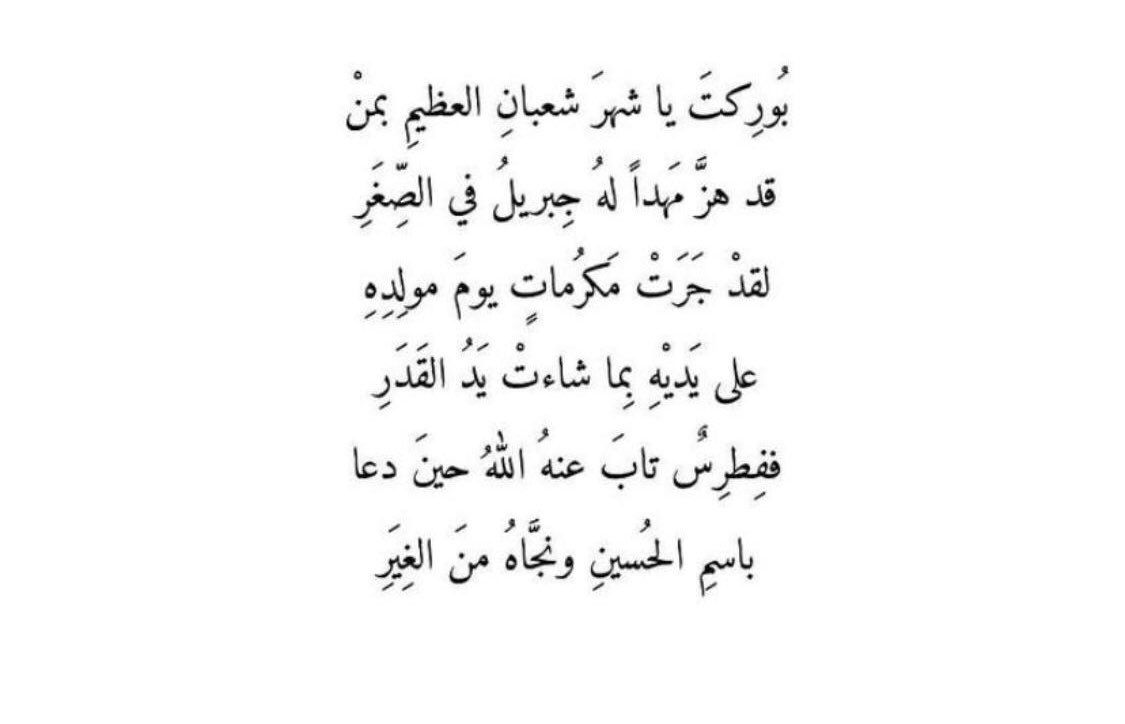 بُورِكتَ يا شهرَ شعبانِ العظيمِ بمنْ
قد هزَّ مَهداً لهُ جِبريلُ في الصِّغَرِ
لقدْ جَرَتْ مَكرُماتٍ يومَ مولِدِهِ
على يَديْهِ بِما شاءتْ يَدُ القَدَرِ
ففِطرِسٌ تابَ عنهُ اللهُ حينَ دعا
باسمِ الحُسينِ ونجَّاهُ منَ الغِيَرِ